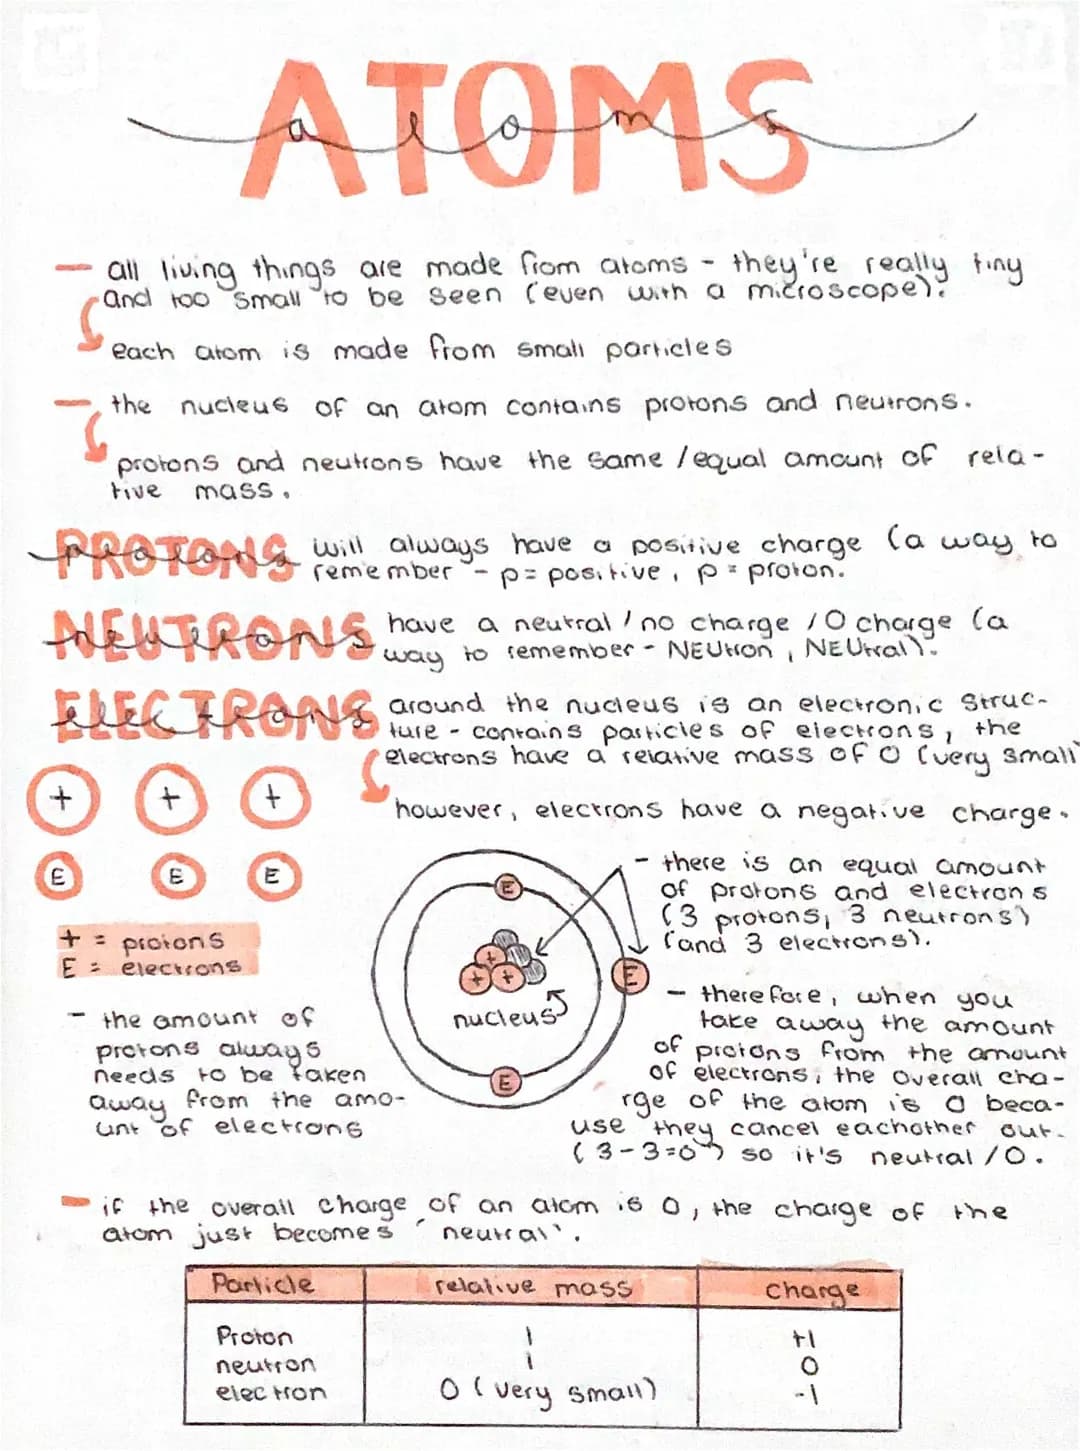 ATOMS
atoms
- all living things are made from atoms - they're really tiny
and too small to be seen (even with a microscope).
each atom is made from small particles
- the nucleus of an atom contains protons and neutrons.
protons and neutrons have the same / equal amount of rela-
tive mass.
PROTONS
protons
will always have a positive charge (a way to
remember - p = positive, p = proton.
NEUTRONS
neutrons
have a neutral / no charge / 0 charge (a
way to remember - NEUtron, NEUtral).
ELECTRONS
electrons
around the nucleus is an electronic struc-
ture - contains particles of electrons, the
electrons have a relative mass of 0 (very small)
however, electrons have a negative charge.
+ + +
E E E
+ = protons
E = electrons
- the amount of
protons always
needs to be taken
away from the amo-
unt of electrons
E
+
+ +
E
nucleus
E
- there is an equal amount
of protons and electrons
(3 protons, 3 neutrons)
(and 3 electrons).
- therefore, when you
take away the amount
of protons from the amount
of electrons, the overall cha-
rge of the atom is 0 beca-
use they cancel eachother out.
(3-3=0) so it's neutral / 0.
- if the overall charge of an atom is 0, the charge of the
atom just becomes 'neutral'.
Particle relative mass charge
Proton 1 +1
neutron 1 0
electron 0 (very small) -1